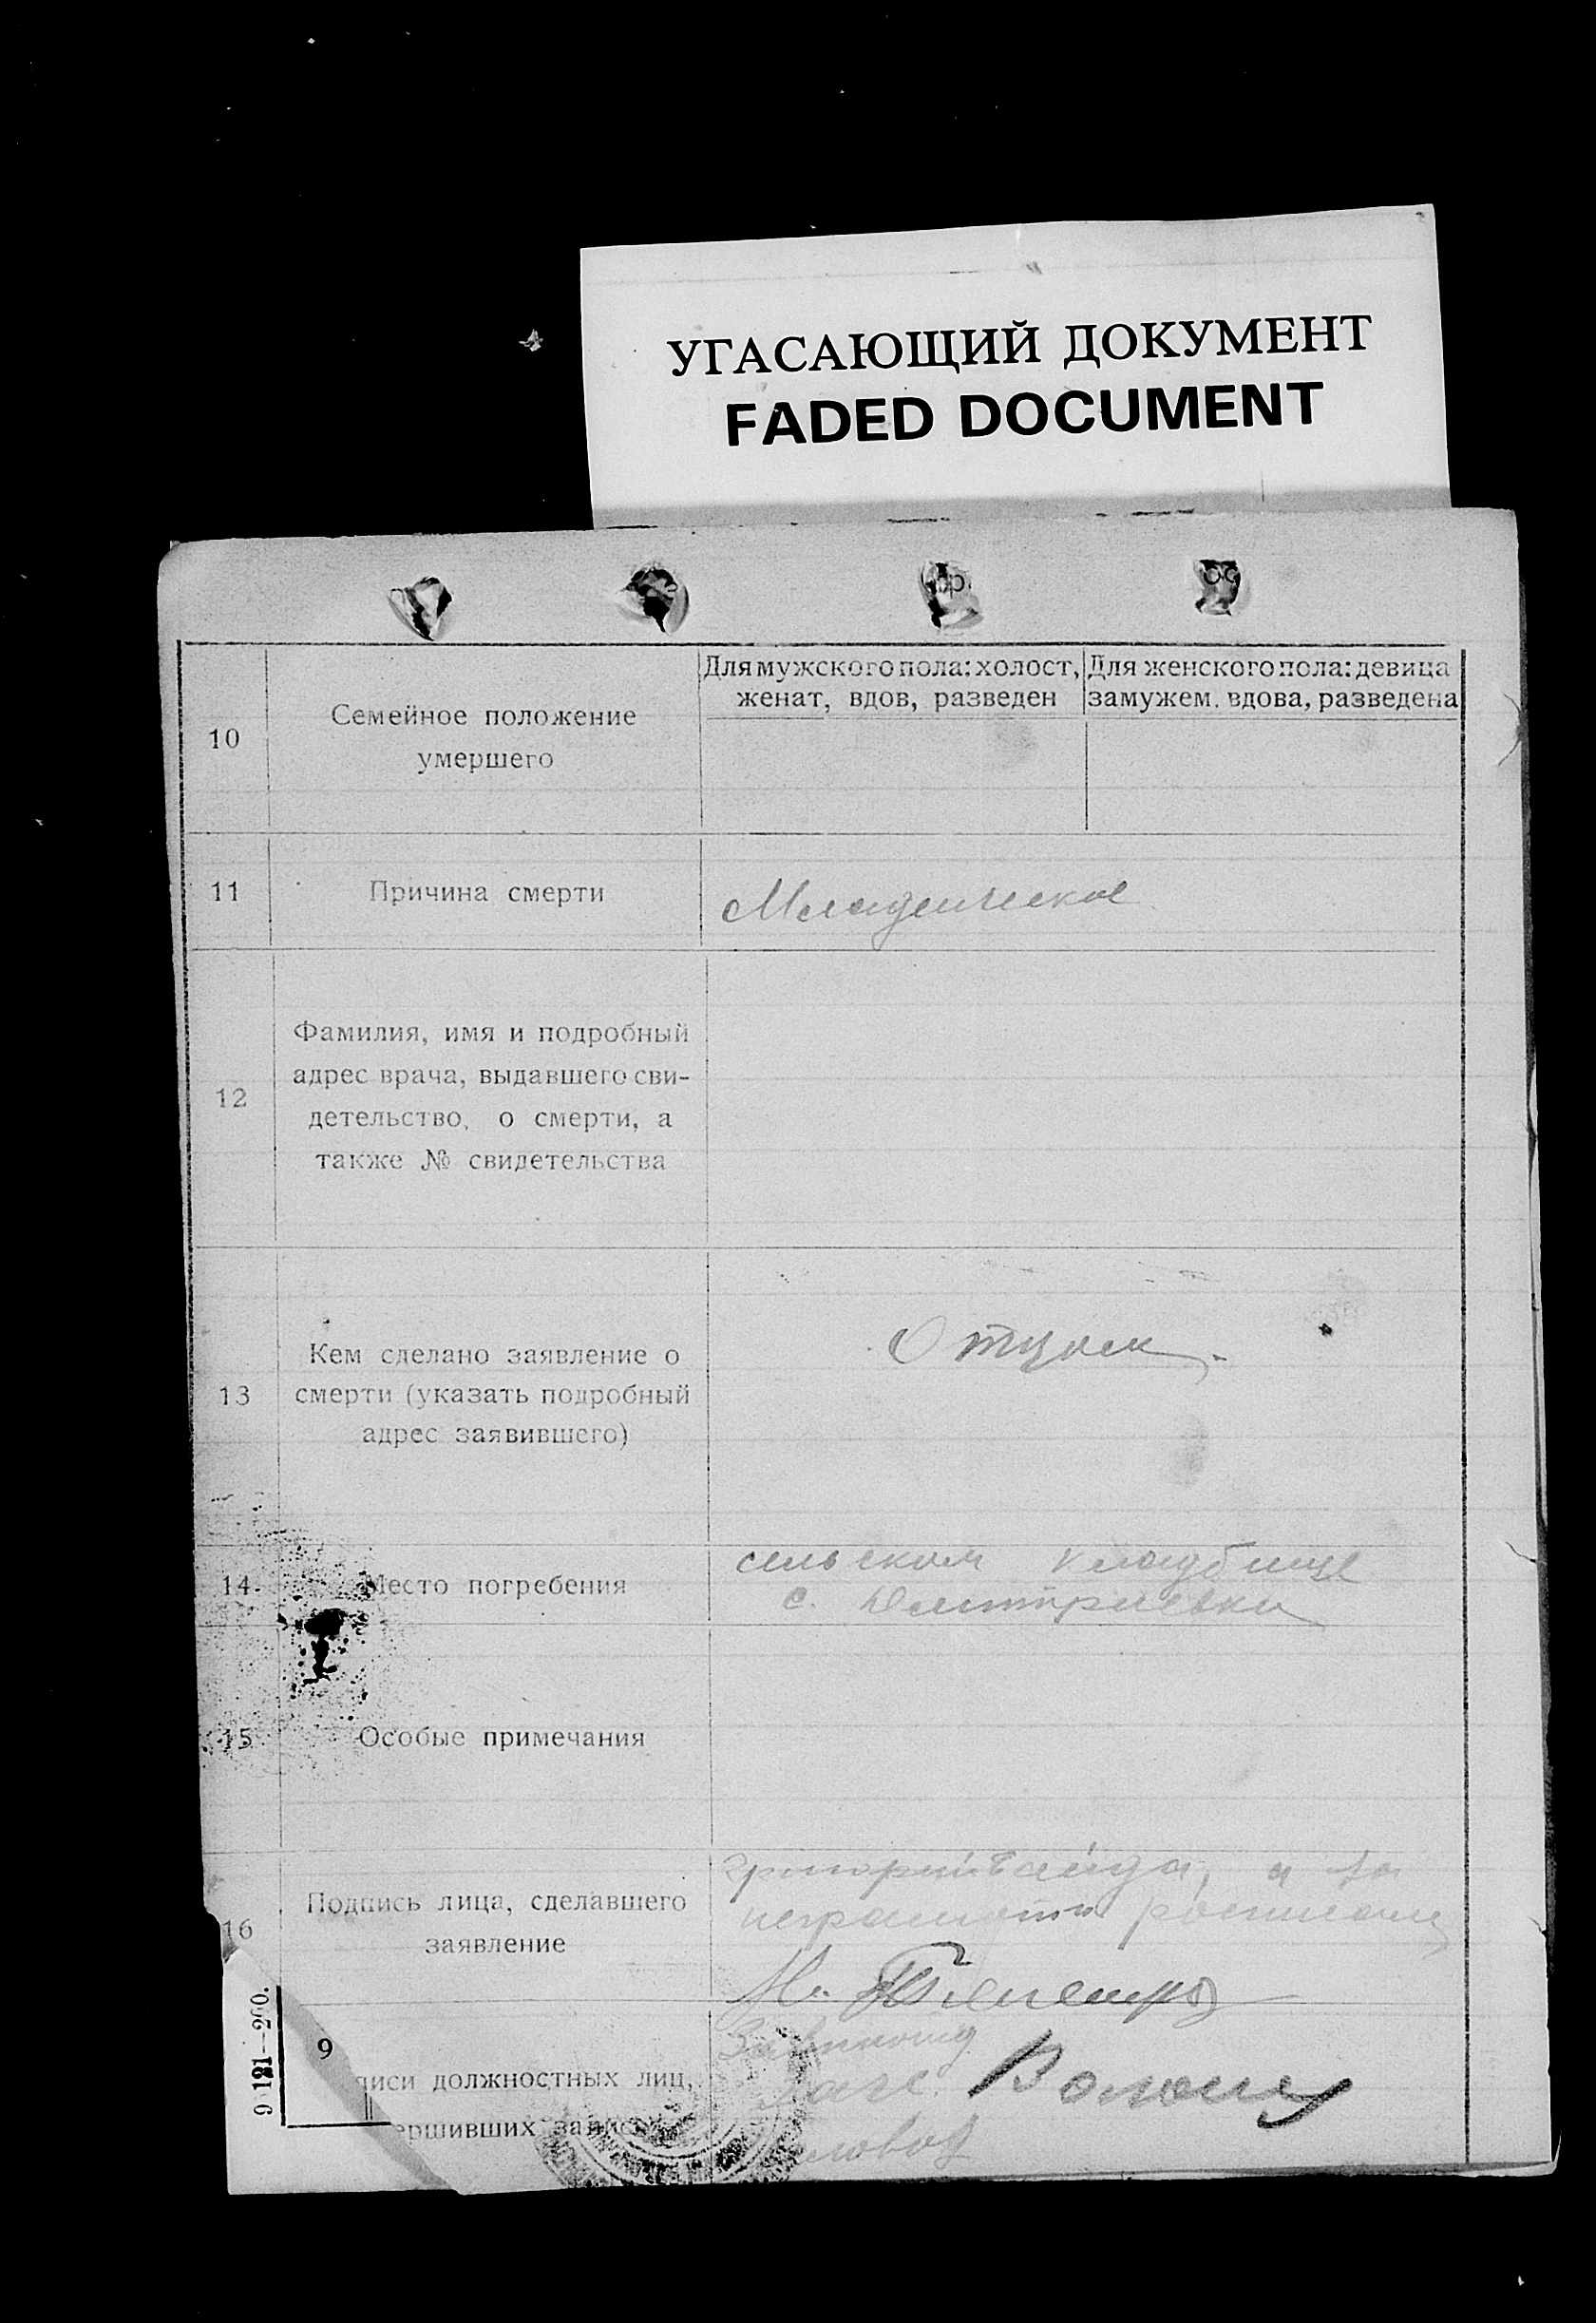 УГАСАЮЩИЙ ДОКУМЕНТ
FADED DOCUMENT
10
Семейное положение
умершего
Для мужского пола: холост,
женат, вдов, разведен
Для женского пола: девица
замужем. вдова, разведена
11
Причина смерти
Младенческое
12
Фамилия, имя и подробный
адрес врача, выдавшего сви-
детельство, о смерти, а
также № свидетельства
13
Кем сделано заявление о
смерти (указать подробный
адрес заявившего)
Отцом
14.
Место погребения
сельском кладбище
с. Дмитриевки
15
Особые примечания
16
Подпись лица, сделавшего
заявление
а за
неграмотн
М.
9
иси должностных лиц,
ершивших запис